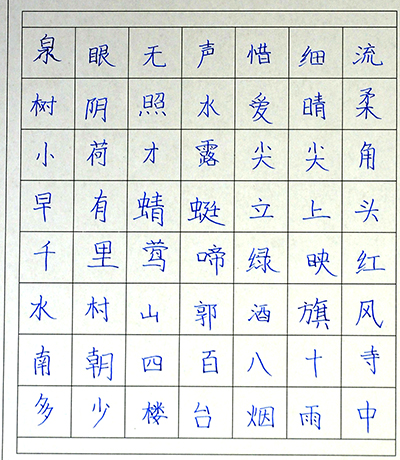 泉眼无声惜细流
树阴照水爱晴柔
小荷才露尖尖角
早有蜻蜓立上头
千里莺啼绿映红
水村山郭酒旗风
南朝四百八十寺
多少楼台烟雨中